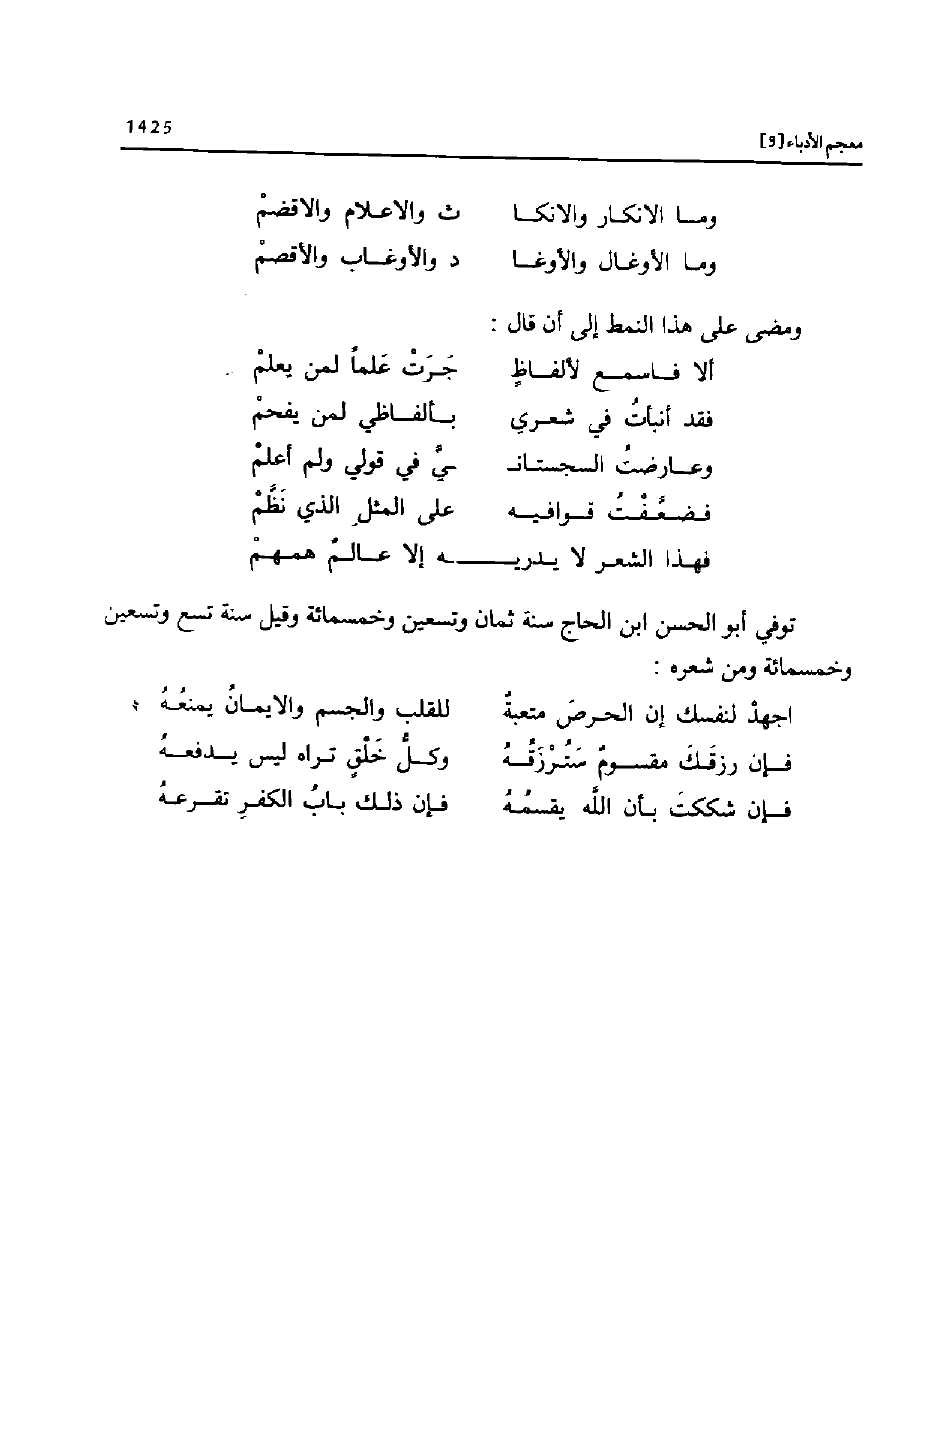 1425
معجم الأدباء [9]
ومـا الانكـار والانكـا ث والاعـلام والاقضمْ
وما الأوغال والأوغـا د والأوغـاب والأقصمْ
ومضى على هذا النمط إلى أن قال :
ألا فـاسمـع لألفـاظٍ جَرَتْ عَلماً لمن يعلمْ
فقد أنبأتُ في شعـري بـألفـاظي لمن يفحمْ
وعـارضتُ السجستانـ ـيَّ في قولي ولم أعلمْ
فضعَّفْتُ قـوافيـه على المثل الذي نَظَّمْ
فهذا الشعر لا يـدريـــه إلا عـالمٌ همهمْ
توفي أبو الحسن ابن الحاج سنة ثمان وتسعين وخمسمائة وقيل سنة تسع وتسعين
وخمسمائة ومن شعره :
اجهدْ لنفسك إن الحرصَ متعبةٌ للقلب والجسم والايمانُ يمنعُهُ
فـإن رزقـكَ مقسـومٌ سَتُرْزَقُـهُ وكـلُّ خَلْقٍ تـراه ليس يـدفعـهُ
فـإن شككتَ بـأن الله يقسمُهُ فإن ذلـك بـابُ الكفـرِ تقـرعـهُ